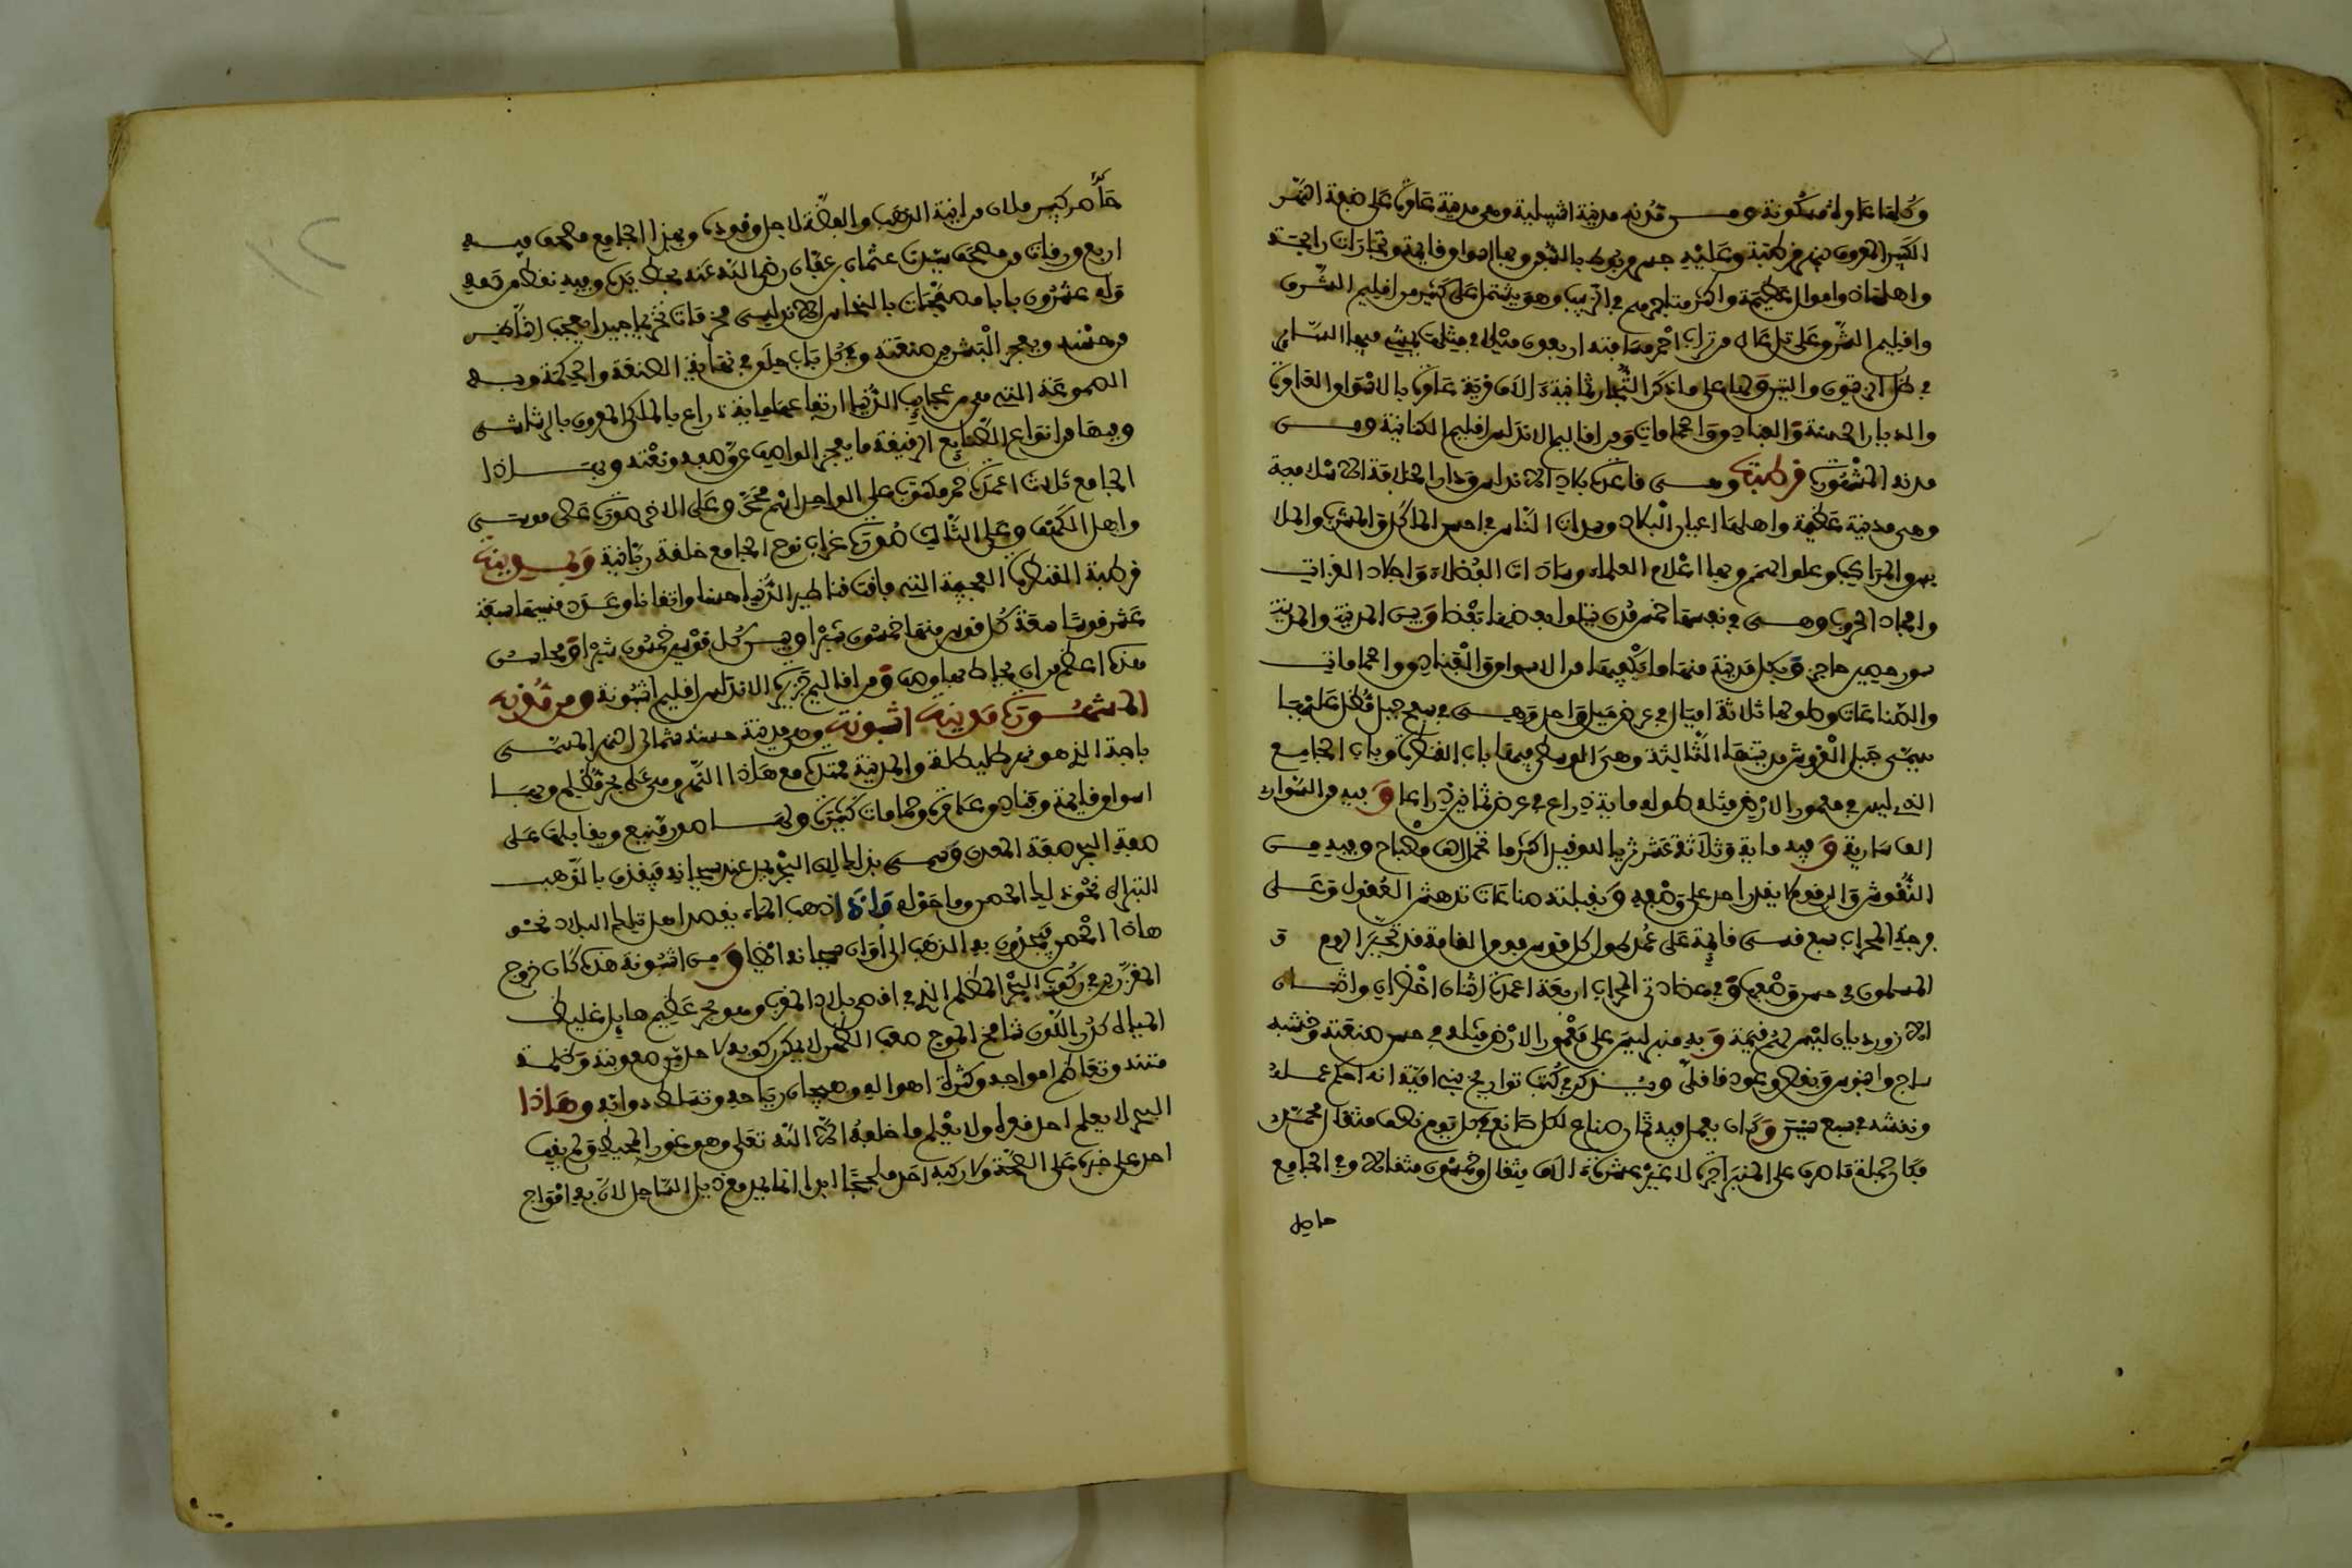 وكلها عامرة مسكونة ومن مدنه مدينة اشبيلية وهي مدينة عامرة على ضفة النهر
الكبير المعروف بنهر قرطبة وعليه جسر مربوط بالسفن وبها اسواق قايمة وتجارات رابحة
واهلها ذوا اموال عظيمة واكثر متاجرهم في الزيت وهو يشتمل على كثير من اقليم الشرف
واقليم الشرف على تل عال من تراب احمر مسافته اربعون ميلا في مثلها يمشي فيها الساير
في ظل الزيتون والتين ولها على ما ذكر التجار ثمانية ءالاف قرية عامرة بالاسواق العامرة
والديار الحسنة والفنادق والحمامات ومن اقاليم الاندلس اقليم الكنانية ومن
مدنه المشهورة قرطبة وهي قاعدة بلاد الاندلس ودار الخلافة الاسلامية
وهي مدينة عظيمة واهلها اعيان البلاد وسراة الناس في حسن الماكل والملابس والملا
بس والمراكب وعلو الهمم وبها اعلام العلماء وسادات الفضلاء واجلاد الغزات
وامجاد الحروب وهي في نفسها خمس مدن يتلوا بعضها بعضا وبين المدينة والمدينة
سور حصين حاجز وبكل مدينة منها ما يكفيها من الاسواق والفنادق والحمامات
والصناعات وطولها ثلاثة اميال في عرض ميل واحد وهي في سفح جبل مطل عليها
يسمى جبل العروس مدينتها الثالثة وهي الوسطى فيها باب القنطرة وباب الجامع
الذي ليس في معمور الارض مثله طوله ماية ذراع في عرض ثمانين ذراعا وفيه من السواري
الف سارية وفيه ماية وثلاثة عشر ثريا للوقيد اكثرها تحمل الف مصباح وفيه من
النقوش والرقوم ما لا يقدر احد على وصفه وبقبلته صناعات تدهش العقول وعلى
فرجة المحراب سبع قسي قايمة على عمد طول كل قوس فوق القامة قد تحير الروم و
المسلمون في حسن وضعها وفي عضادتي المحراب اربعة اعمدة اثنان اخضران واثنان
لازورديان ليس لهم قيمة وبه منبر ليس على معمور الارض مثله في حسن صنعته وخشبه
ساج وابنوس وبقم وعود قاقلي ويذكر في كتب تواريخ بني امية انه احكم عمله
ونقشه في سبع سنين وكان يعمل فيه ثمان صناع لكل صانع في كل يوم نصف مثقال محمدي
فكان جملة ما صرف على المنبر اجرة لا غير عشرة الاف مثقال وخمسون مثقالا وفي الجامع
حاصل
حاصل كبير ملان من ءانية الذهب والفضة لاجل وقوده وبهذا الجامع مصحف فيه
اربع ورقات من مصحف سيدنا عثمان بن عفان رضي الله عنه بخط يده وفيه نقط من دمه
وله عشرون بابا مصفحات بالنحاس الاندلسي مخرمات تخريما جيدا يعجب الناظر
من حسنه ويعجز البشر من صنعته وفي كل باب حلق في نهاية الصنعة والحكمة وبه
الصومعة التي هي من عجايب الدنيا ارتفاعها ماية ذراع بالملكي المعروف بالرشاشي
وفيها من انواع الصنايع الرقيقة ما يعجز الواصف عن وصفه ونعته وبهذا
الجامع ثلاث اعمدة حمر مكتوب على الواحد اسم محمد وعلى الاخر صورة عصى موسى
واهل الكهف وعلى الثالث صورة غراب نوح الجامع خلقة ربانية وبمدينة
قرطبة القنطرة العجيبة التي فاقت قناطير الدنيا حسنا واتقانا وعدد قسيها سبعة
عشر قوسا سعة كل قوس منها خمسون شبرا وبين كل قوسين خمسون شبرا ومحاسن
هذه اعظم من ان يحاط بها وصف ومن اقاليم جزيرة الاندلس اقليم اشبونة ومن مدنه
المشهورة مدينة اشبونة وهي مدينة حسنة شمالي النهر المسمى
باجة الذي هو نهر طليطلة والمدينة ممتدة مع هذا النهر وهي على بحر مظلم وبها
اسواق قايمة وفنادق عامرة وحمامات كثيرة ولها سور منيع ويقابلها على
ضفة البحر حصن المعدن وسمي بذلك لان البحر يمد عند هيجانه فيقذف بالذهب
التبر الى نحو ذلك الحصن وما حوله فاذا ذهب الماء يقصد اهل تلك البلاد نحو
هاذا الحصن فيجدون به الذهب الى اوان هيجانه ايضا ومن اشبونة هذه كان خروج
المغررين في ركوب البحر المظلم الذي في اقصى بلاد المغرب وهو بحر عظيم هايل غليظ
المياه كدر اللون شامخ الموج صعب الظهر لا يمكن ركوبه لاحد من صعوبته وظلمة
متنه وتعاظم امواجه وكثرة اهواله وهيجان رياحه وتسلط دوابه وهاذا
البحر لا يعلم احد قعره ولا يعلم ما خلفه الا الله تعلى وهو غور المحيط ولم يقف
احد على خبره على الصحة ولا ركبه احد ملججا ابدا انما يمر مع ذيل الساحل لان به امواج